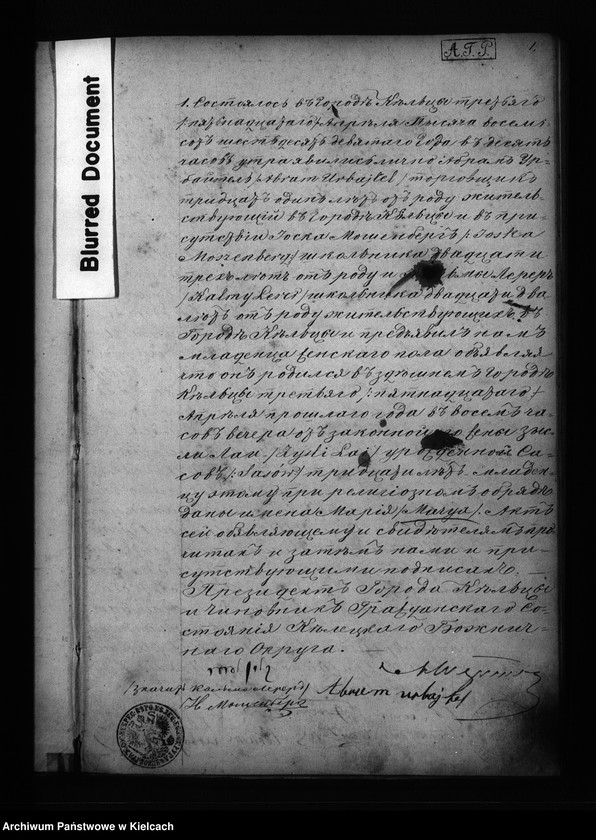 Blurred Document
А.Г.Р.
1.
1. Состоялось въ Городѣ Кѣльцы третьяго
/пятнадцатаго/ Апрѣля мѣсяца восемь-
сотъ шестьдесятъ девятаго года въ десять
часовъ утра явились лично Абрамъ Ур-
байтель /Abram Urbajtel/ торговщикъ
тридцать одинъ лѣтъ отъ роду житель-
ствующій въ Городѣ Кѣльцы и въ при-
сутствіи Іоска Мошенбергъ /Joska
Moszenberg/ школьника двадцати
трехъ лѣтъ отъ роду и Лереръ
/Kalmy Lerer/ школьника двадцати два
лѣтъ отъ роду жительствующихъ въ
Городѣ Кѣльцы и предъявилъ намъ
младенца женскаго пола объявляя
что онъ родился въ здѣшнемъ Городѣ
Кѣльцы третьяго /пятнадцатаго/
Апрѣля прошлаго года въ восемь ча-
совъ вечера отъ законной его жены Зыс-
ли Лаи /Zysli Lai/ урожденной Са-
совъ /Sasow/ тридцати лѣтъ младен-
цу этому при религіозномъ обрядѣ
даны имена Марія /Marya/. Актъ
сей объявляющему и свидѣтелямъ про-
читанъ и затѣмъ нами и при-
сутствующими подписанъ. —
Президентъ Города Кѣльцы
и Чиновникъ Гражданскаго Со-
стоянія Кѣлецкаго Божнич-
наго Округа. —
/значитъ Кальма Лереръ/
Abram urbajtel
Н. Мошенберг
Archiwum Państwowe w Kielcach